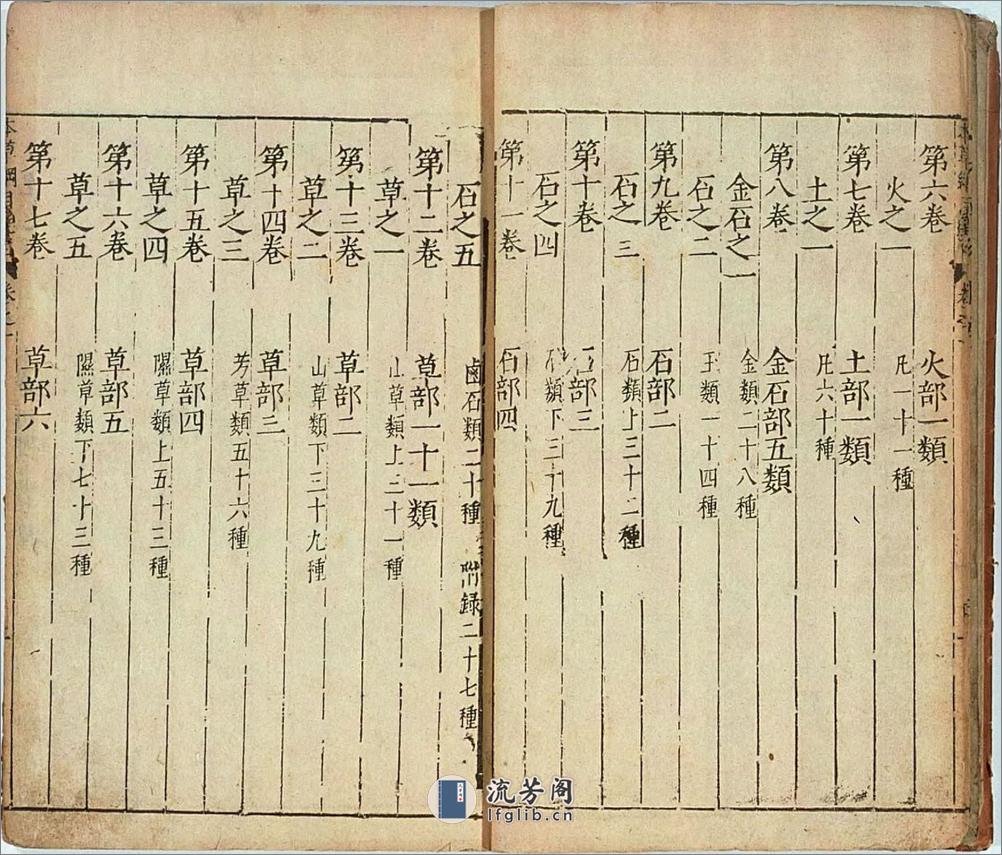 第六卷 火部一類
火之一 凡一十一種
第七卷 土部一類
土之一 凡六十種
第八卷 金石部五類
金石之一 金類二十八種
石之二 玉類一十四種
第九卷 石部二
石之三 石類上三十二種
第十卷 石部三
石之四 石類下三十九種
第十一卷 石部四
石之五 鹵石類二十種 附録二十七種
第十二卷 草部一十一類
草之一 山草類上三十一種
第十三卷 草部二
草之二 山草類下三十九種
第十四卷 草部三
草之三 芳草類五十六種
第十五卷 草部四
草之四 隰草類上五十三種
第十六卷 草部五
草之五 隰草類下七十三種
第十七卷 草部六
流芳阁
lfglib.cn